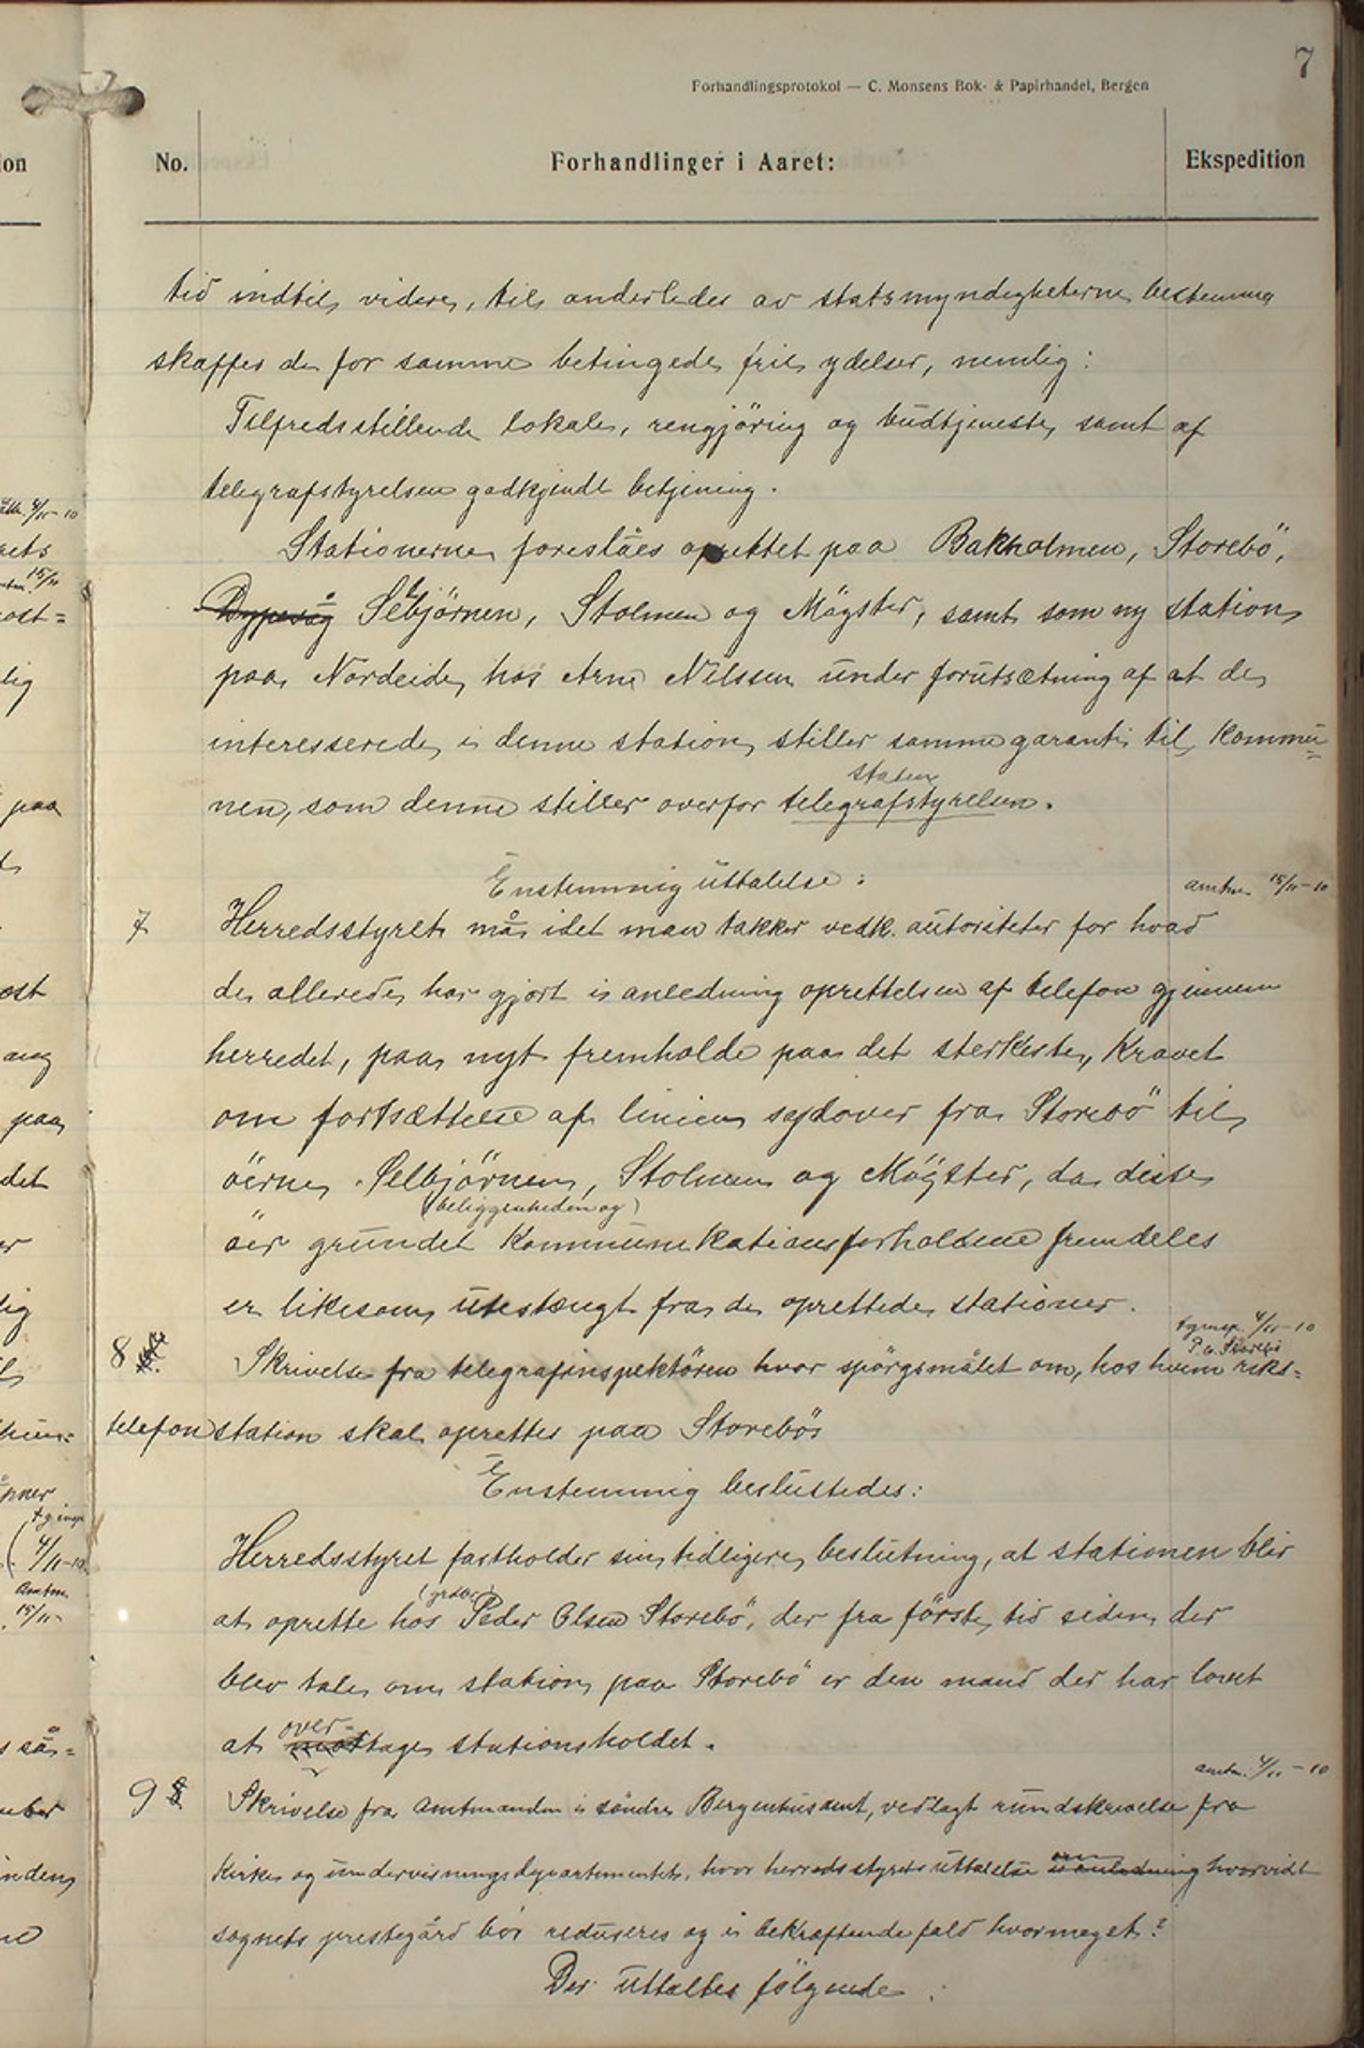 7
Forhandlingsprotokol — C. Monsens Bok- & Papirhandel, Bergen
No. Forhandlinger i Aaret: Ekspedition
tid indtil videre, til anderledes av statsmyndigheterne bestemmes
skaffes de for samme betingede frie ydelser, nemlig:
Tilfredsstillende lokale, rengjöring og budtjeneste, samt af
telegrafstyrelsen godkjendt betjening.
Stationerne foreslåes oprettet paa Bakholmen, Storebö,
Dypesåg Selbjörnen, Stolmen og Mögster, samt som ny station
paa Nordeide hos Arne Nilssen under forutsætning af at de
interesserede i denne station stiller samme garanti til Kommu=
staten
nen, som denne stiller overfor telegrafstyrelsen.
Enstemmig uttalelse:
amtm. 15/11-10
7 Herredsstyret må idet man takker vedk. autoriteter for hvad
de allerede har gjort i anledning oprettelsen af telefon gjennem
herredet, paa nyt fremholde paa det sterkeste, Kravet
om fortsættelse af linien sydover fra Storebö til
öerne Selbjörnen, Stolmen og Mögster, da disse
(beliggenheden og)
öer grundet Kommunikationsforholdene fremdeles
er likesom utestængt fra de oprettede stationer.
t.g.insp. 4/11-10
P. O. Storebö
8 Skrivelse fra telegrafinspektören hvor spörgsmålet om, hos hvem riks=
telefon station skal oprettes paa Storebö
Enstemmig besluttedes:
Herredsstyret fastholder sin tidligere beslutning, at stationen blir
at oprette hos Peder Olsen Storebö, der fra förste tid siden der
blev tale om station paa Storebö er den mand der har lovet
over-
at mottage stationsholdet.
amtm. 4/11-10
9 8 Skrivelse fra amtmanden i söndre Bergenhusamt, vedlagt rundskrivelse fra
om
Kirke og undervisningsdepartementet, hvor herredsstyrets uttalelse i anledning hvorvidt
sognets prestegård bör reduseres og i bekræftende fald hvormeget?
Der uttaltes fölgende: